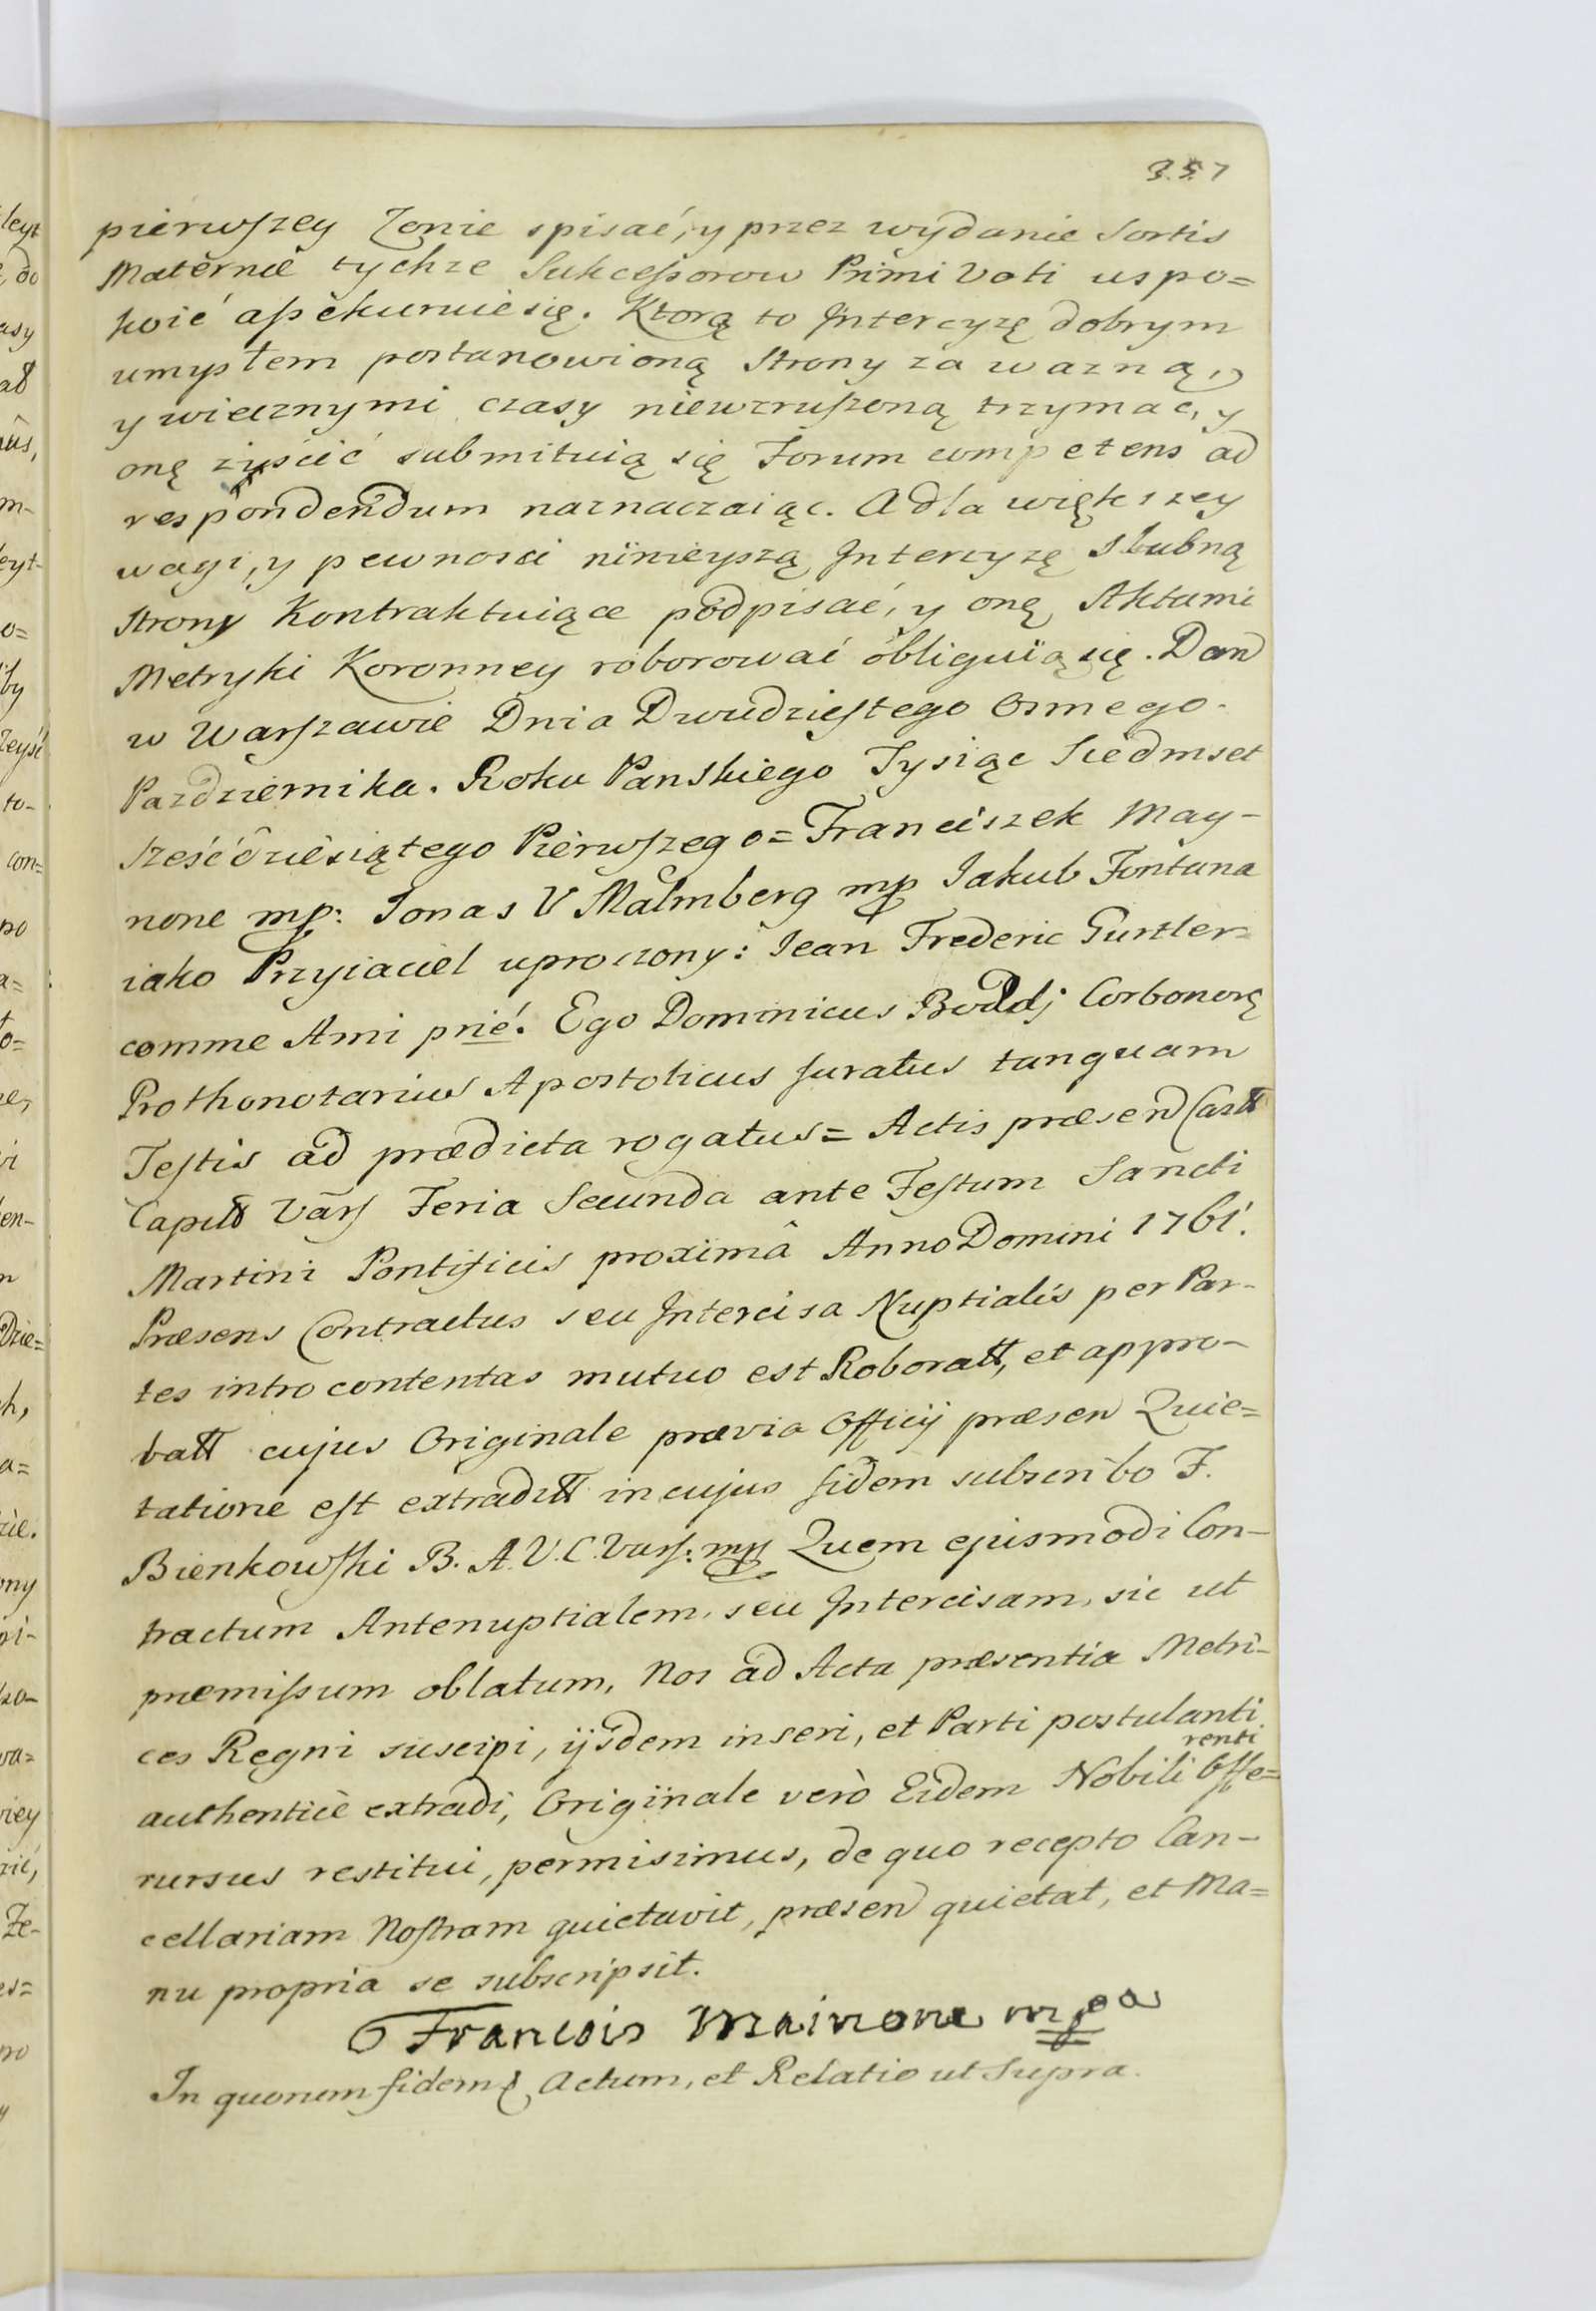 357
pierwszey Zonie spisać, y przez wydanie Sortis
Maternæ tychże Sukcessorow Primi Voti uspo=
koić assekuruie się. Ktorą to Intercyzę dobrym
umysłem postanowioną Strony za wazną,
y wiecznymi czasy niewzruszoną trzymac, y
onę ziścić submituią się Forum competens ad
respondendum naznaczaiąc. A dla większey
wagi, y pewnosci ninieyszą Intercyzę Slubną
Strony Kontraktuiące podpisać, y onę Aktami
Metryki Koronney roborować obliguią się. Dan
w Warszawie Dnia Dwudziestego Osmego
Pazdziernika. Roku Panskiego Tysiąc Siedmset
Sześćdziesiątego Pierwszego = Franciszek May-
none mp: Jonas V Malmberg mp Jakub Fontana
iako Przyiaciel uproszony: Jean Frederic Gurtler
comme Ami prié. Ego Dominicus Boddj Corbonorę
Prothonotarius Apostolicus Juratus tanquam
Testis ad prædicta rogatus = Actis præsen Castt
Capitt Vars Feria Secunda ante Festum Sancti
Martini Pontificis proximâ Anno Domini 1761.
Præsens Contractus seu Intercisa Nuptialis per Par-
tes intro contentas mutuo est Roboratt, et appro-
batt cujus Originale prævia Officij præsen Quie=
tatione est extraditt in cujus fidem subscribo F.
Bienkowski B. A. V. C. Vars: mp Quem ejusmodi Con-
tractum Antenuptialem, seu Intercisam, sic ut
præmissum oblatum, Nos ad Acta præsentia Metri-
ces Regni suscipi, ijsdem inseri, et Parti postulanti
authenticè extradi, Originale verò Eidem Nobili Offe=
renti
rursus restitui, permisimus, de quo recepto Can-
cellariam Nostram quietavit, præsen quietat, et Ma=
nu propria se subscripsit.
Francois Mainone mpa
In quorum fidem Actum, et Relatio ut Supra.